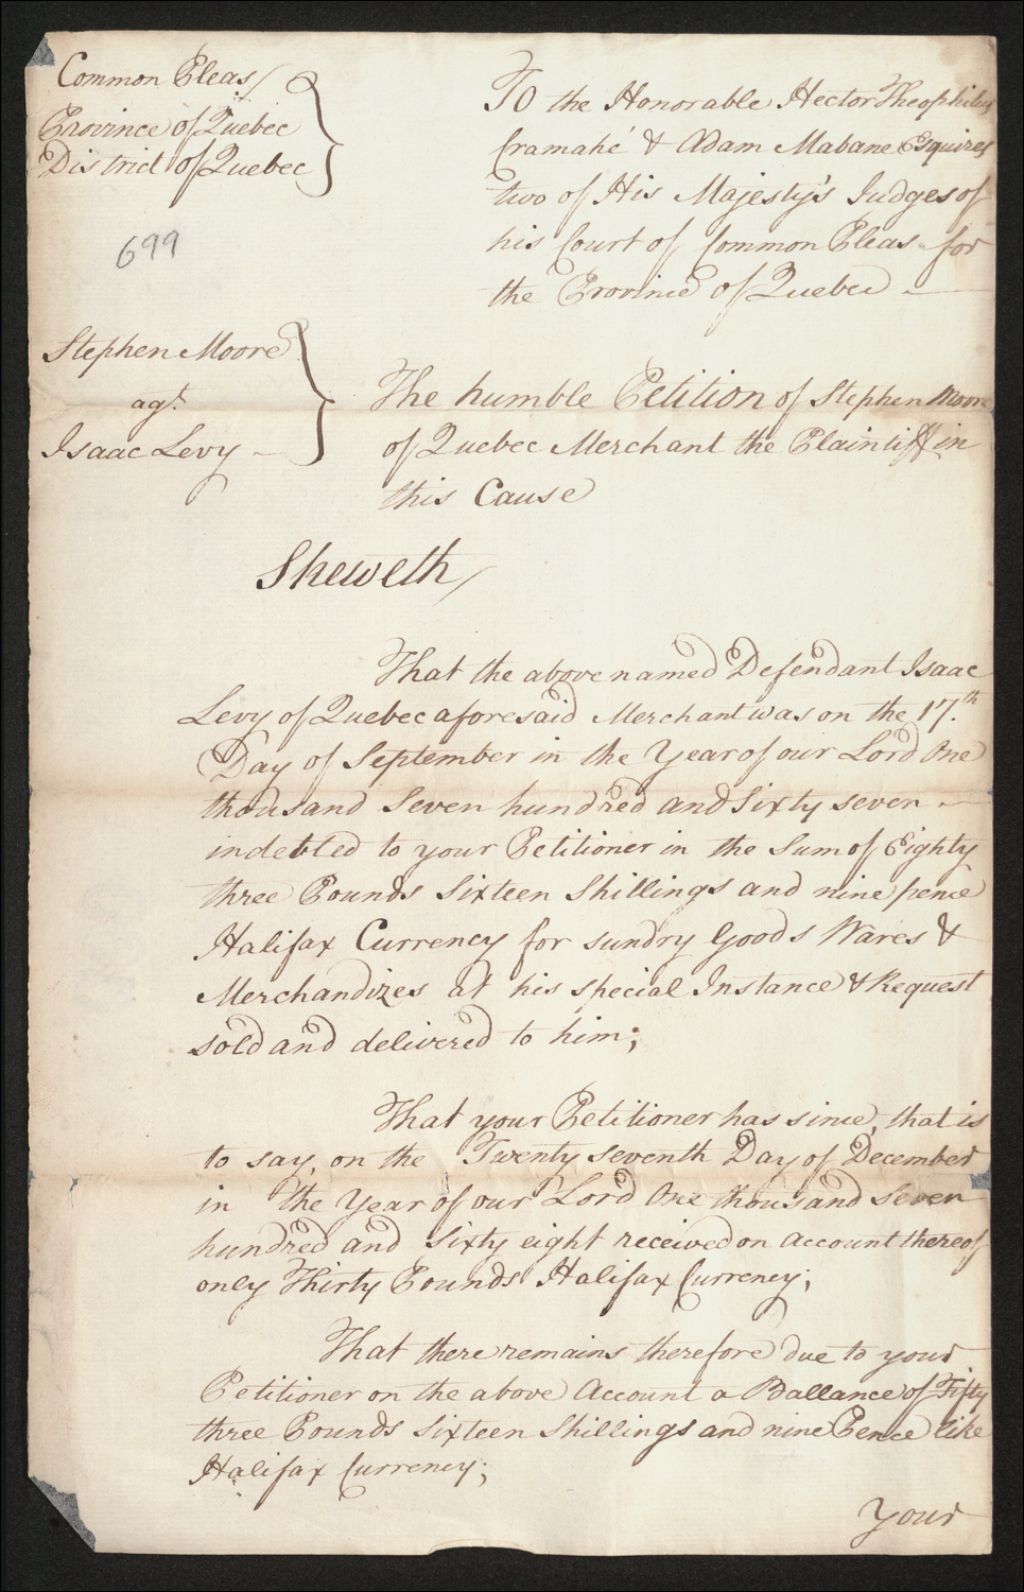 Common Pleas
Province of Quebec
District of Quebec
699
To the Honorable Hector Theophilus
Cramahé & Adam Mabane Esquires
two of His Majesty's Judges of
his Court of Common Pleas for
the Province of Quebec
Stephen Moore
agt.
Isaac Levy
The humble Petition of Stephen Moore
of Quebec Merchant the Plaintiff in
this Cause
Sheweth
That the above named Defendant Isaac
Levy of Quebec aforesaid Merchant was on the 17.th
Day of September in the Year of our Lord One
thousand Seven hundred and Sixty seven
indebted to your Petitioner in the Sum of Eighty
three Pounds Sixteen Shillings and nine pence
Halifax Currency for sundry Goods Wares &
Merchandizes at his special Instance & Request
sold and delivered to him;
That your Petitioner has since, that is
to say, on the Twenty seventh Day of December
in the Year of our Lord One thousand Seven
hundred and Sixty eight received on Account thereof
only Thirty Pounds Halifax Currency;
That there remains therefore due to your
Petitioner on the above Account a Ballance of Fifty
three Pounds Sixteen Shillings and nine Pence like
Halifax Currency;
Your